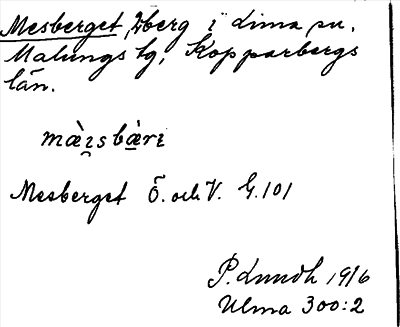 Mesberget, 2berg i Lima sn.
Malungs tg, Kopparbergs
län.
mæ̀i̯sbæ̱rɩ
Mesberget Ö. och V. G.101
P. Lundh 1916
Ulma 300:2